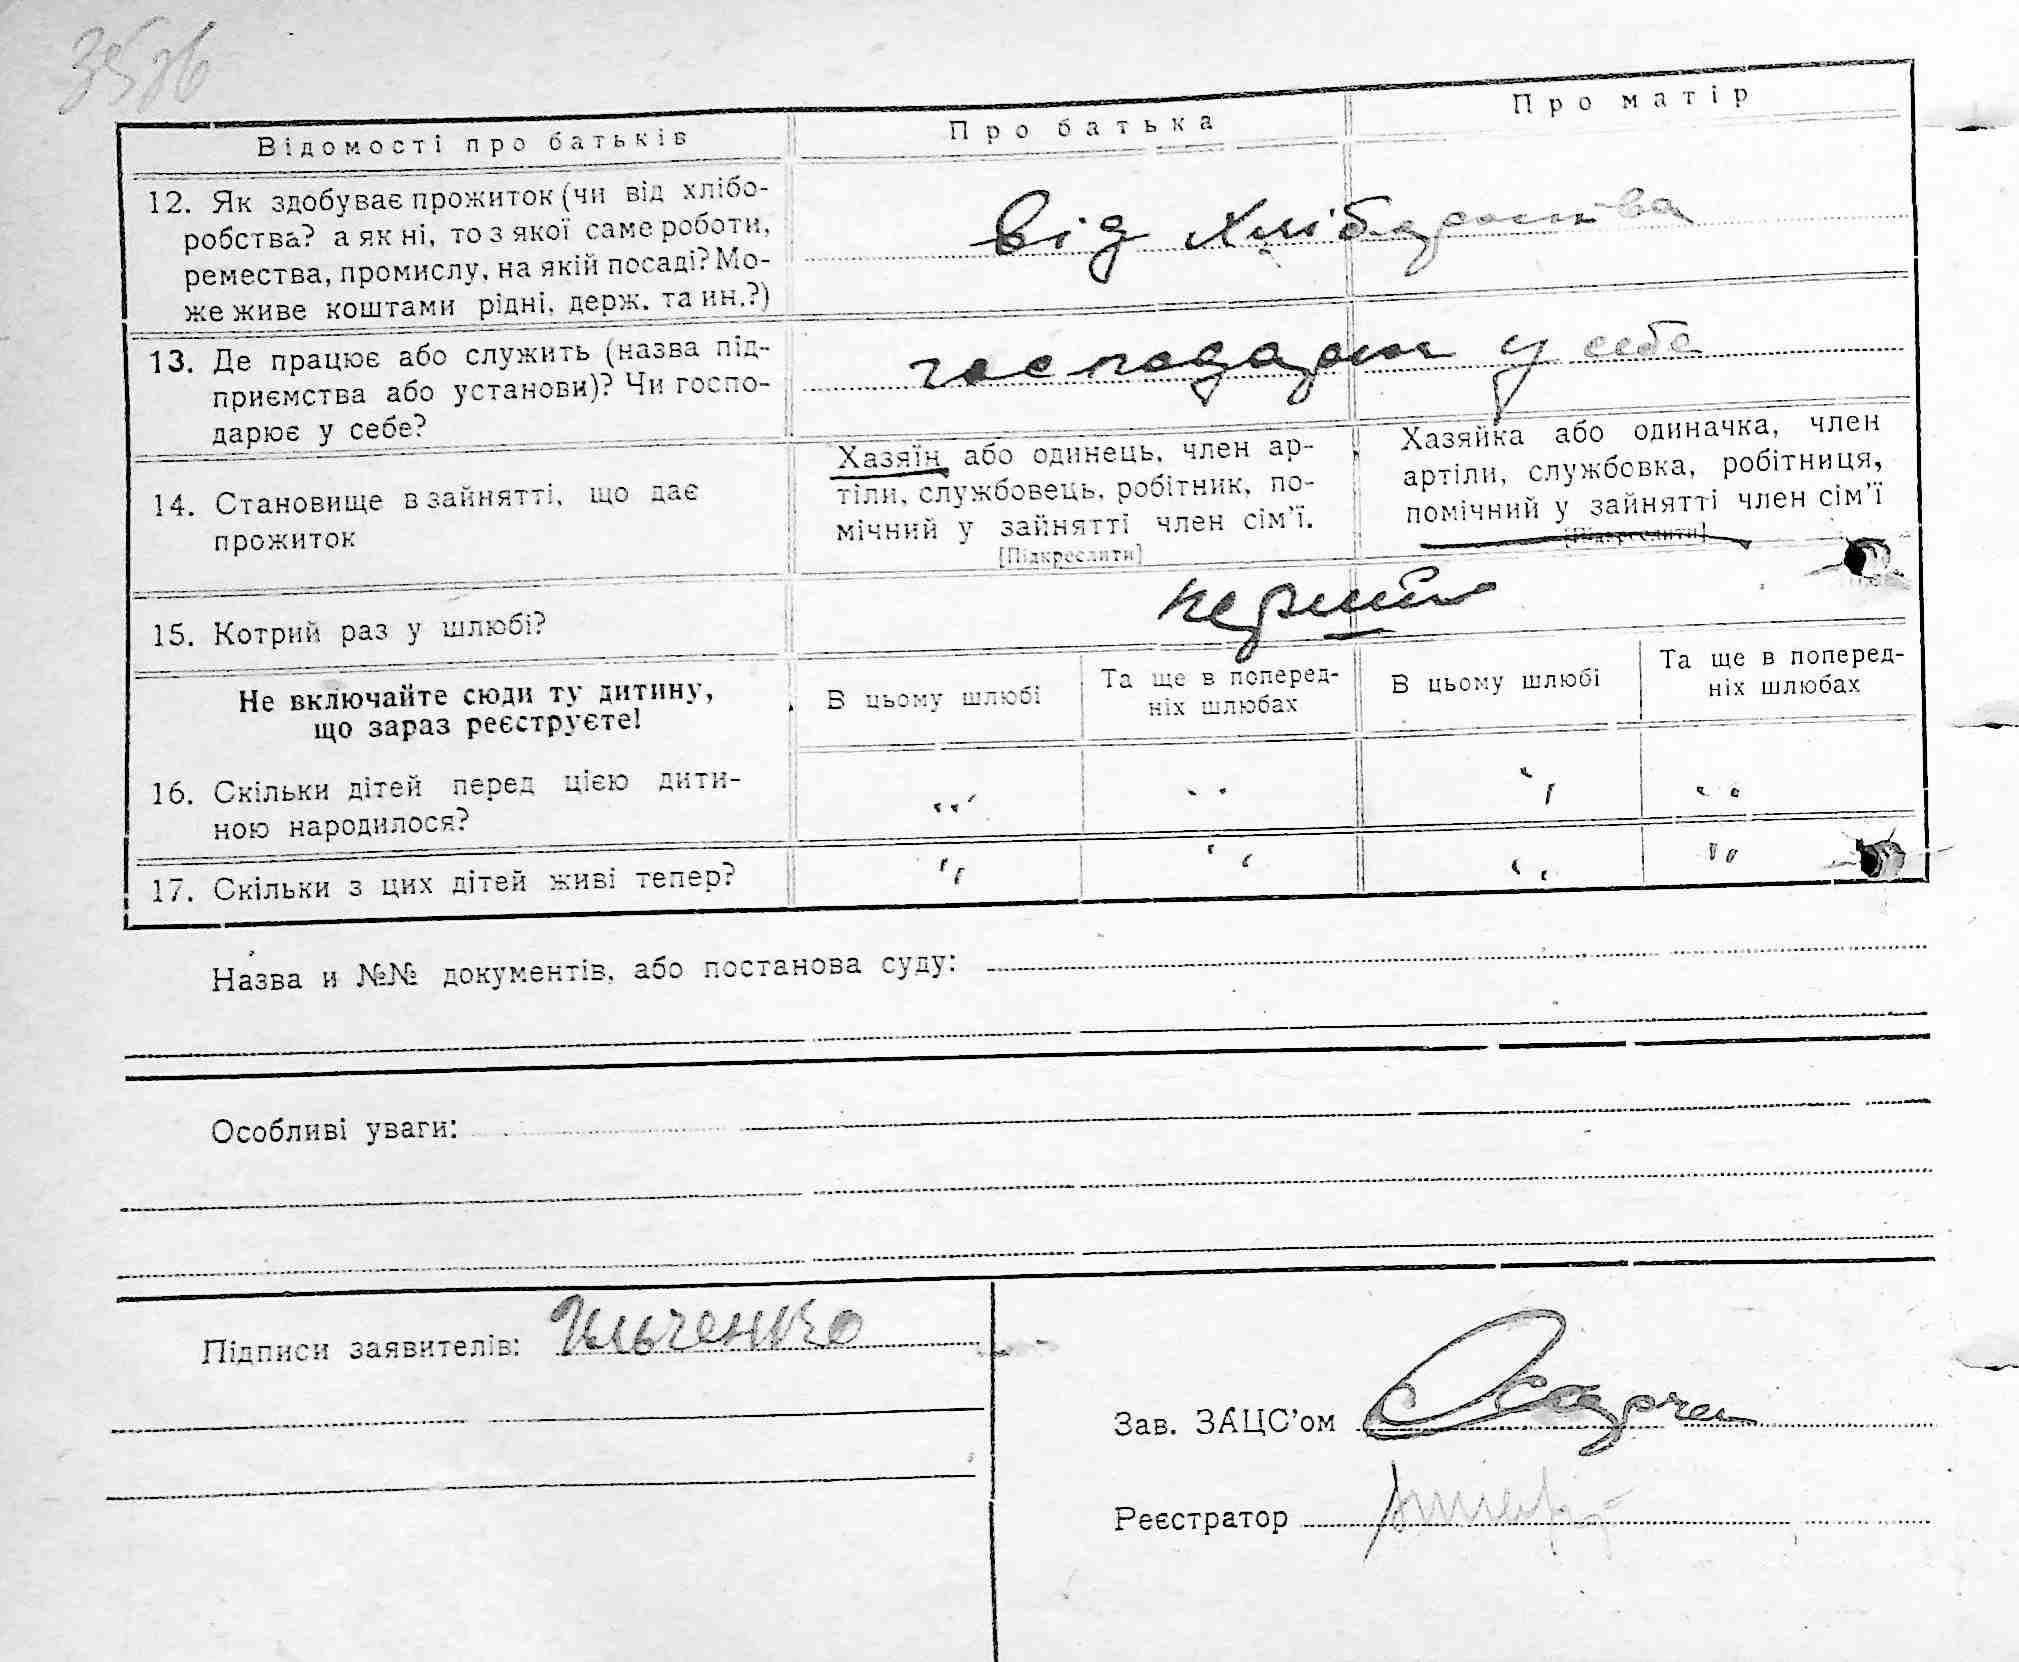 Відомості про батьків Про батька Про матір
12. Як здобуває прожиток (чи від хлібо-
робства? а як ні, то з якої саме роботи,
ремества, промислу, на якій посаді? Мо-
же живе коштами рідні, держ. та ин.?)
від хліборобства
13. Де працює або служить (назва під-
приємства або установи)? Чи госпо-
дарює у себе?
господарює у себе
14. Становище в зайнятті, що дає
прожиток
Хазяїн або одинець, член ар-
тіли, службовець, робітник, по-
мічний у зайнятті член сім'ї.
[Підкреслити]
Хазяйка або одиначка, член
артіли, службовка, робітниця,
помічний у зайнятті член сім'ї
[Підкреслити]
15. Котрий раз у шлюбі?
перший
Не включайте сюди ту дитину,
що зараз реєструєте!
В цьому шлюбі
Та ще в поперед-
ніх шлюбах
В цьому шлюбі
Та ще в поперед-
ніх шлюбах
16. Скільки дітей перед цією дити-
ною народилося?
" " " "
17. Скільки з цих дітей живі тепер? " " " "
Назва и №№ документів, або постанова суду:
Особливі уваги:
Підписи заявителів: Ильченко
Зав. ЗАЦС'ом
Реєстратор